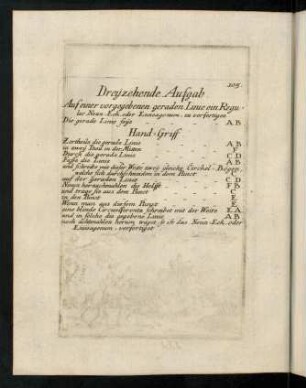 105.
Dreyzehende Aufgab
Auf einer vorgegebenen geraden Linie ein Regu-
lar Neun-Eck, oder Enneagonum, zu verfertigen
Die gerade Linie seye A. B.
Hand-Griff
Zertheile die gerade Linie A. B.
in zwey Theil in der Mitten
durch die gerade Linie C. D.
Fasse die Linie A. B.
und schreibe mit dieser Weite zwey gleiche Circkel-Bögen,
welche sich durchschneiden in dem Punct
auf der geraden Linie C. D.
und trage sie aus dem Punct C
in den Punct E
Wenn man aus diesem Punct E
eine blinde Circumferentz schreibet mit der Weite E. A.
und in solche die gegebene Linie A. B.
noch achtmahlen herum träget, so ist das Neun-Eck, oder
Enneagonum, verfertiget